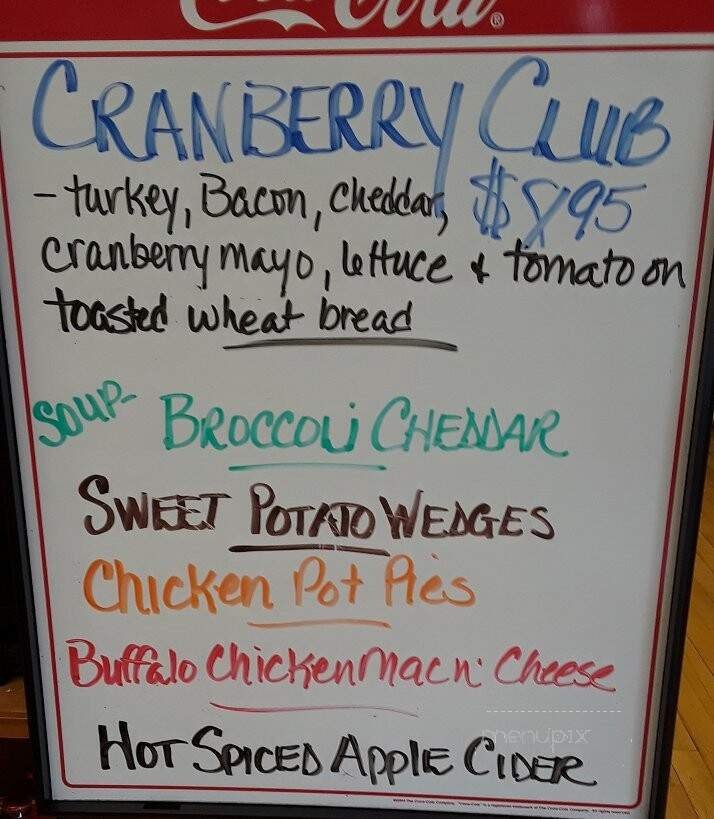 Coca-Cola®
CRANBERRY CLUB
- turkey, Bacon, cheddar, $8.95
cranberry mayo, lettuce & tomato on
toasted wheat bread
SOUP- BROCCOLI CHEDDAR
SWEET POTATO WEDGES
Chicken Pot Pies
Buffalo Chicken Mac n' Cheese
menupix
HOT SPICED APPLE CIDER